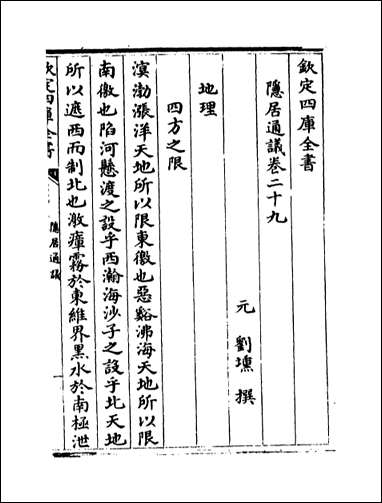 欽定四庫全書
隱居通議卷二十九
元 劉壎 撰
地理
四方之限
溟渤漲洋天地所以限東徼也惡谿沸海天地所以限
南徼也陷河懸渡之設乎西瀚海沙子之設乎北天地
所以遮西而制北也激瘴霧於東維界黑水於南極泄
欽定四庫全書
隱居通議